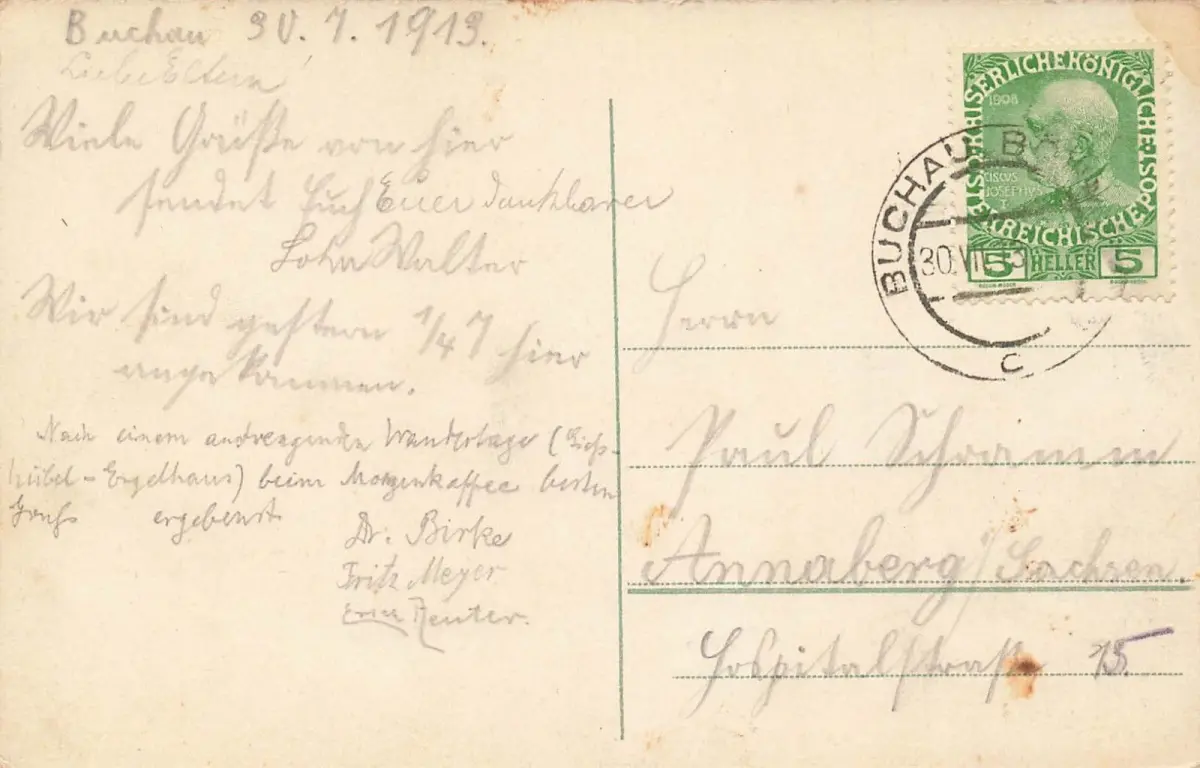 Buchau 30. 7. 1913.
Liebe Eltern
Viele Grüße von hier
sendet Euch Euer dankbarer
Sohn Walter
Wir sind gestern 1/4 7 hier
angekommen.
Nach einem anstrengenden Wandertage (Gieß-
hübel - Engelhaus) beim Morgenkaffee besten
Gruß ergebenst
Dr. Birke
Fritz Meyer
Erich Reuter.
KAISERLICHEKÖNIGLICHE
ÖSTERREICHISCHEPOST
1908
CISCVS
IOSEFVS
I
5 HELLER 5
BUCHAU B
30.VII.13
C
Herrn
Paul Schramm
Annaberg / Sachsen.
Hospitalstraße 15.